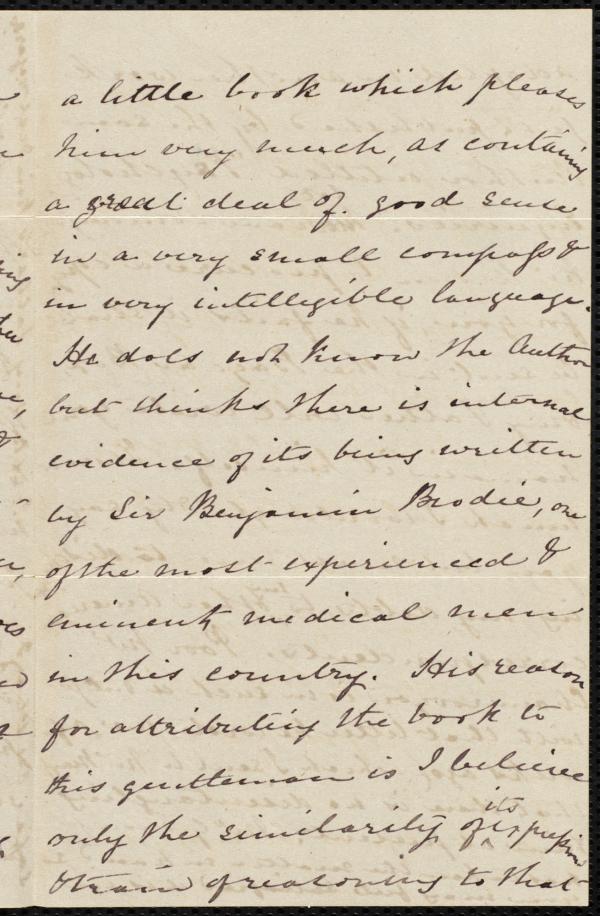 a little book which pleases
him very much, as containing
a great deal of good sense
in a very small compass &
in very intelligible language.
He does not know the Author
but thinks there is internal
evidence of its being written
by Sir Benjamin Brodie, one
of the most experienced &
eminent medical men
in this country. His reason
for attributing the book to
this gentleman is I believe
only the similarity of its expression
& train of reasoning to that